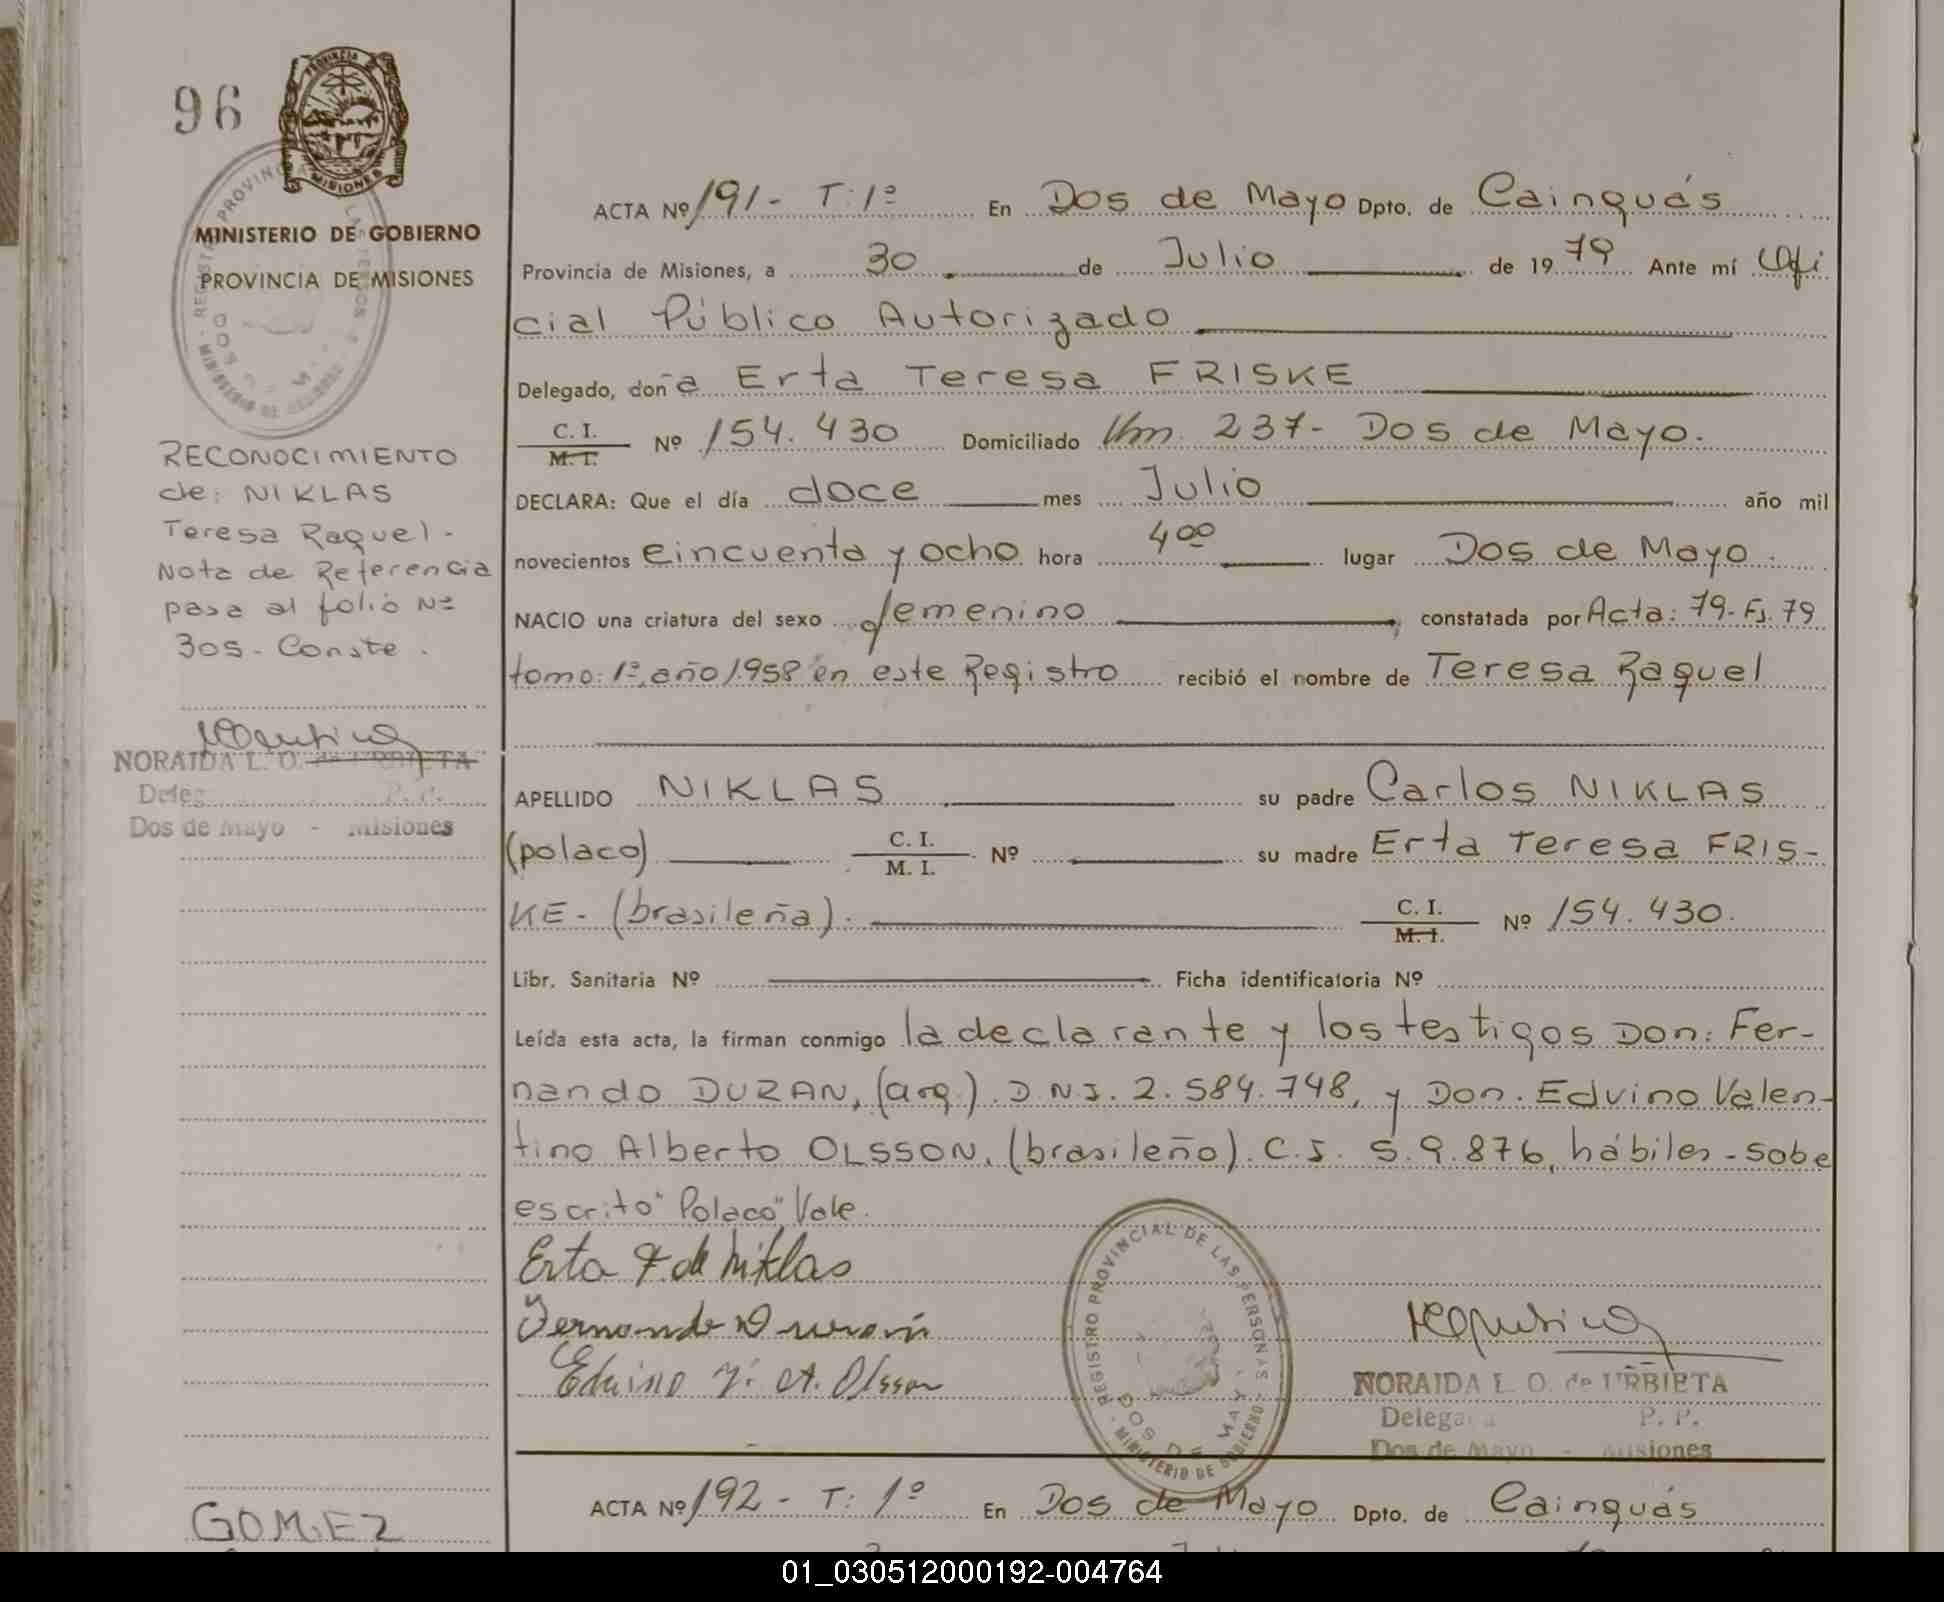 96
PROVINCIA DE
MISIONES
MINISTERIO DE GOBIERNO
PROVINCIA DE MISIONES
RECONOCIMIENTO
de: NIKLAS
Teresa Raquel -
Nota de Referencia
pasa al folio Nº
305 - Conste .
NORAIDA L. O. de URBIETA
Deleg P. P.
Dos de Mayo - Misiones
ACTA Nº 191 - T: 1º En Dos de Mayo Dpto. de Cainguás
Provincia de Misiones, a 30 de Julio de 1979 Ante mí Ofi
cial Público Autorizado
Delegado, doña Erta Teresa FRISKE
C. I. / M. I. Nº 154.430 Domiciliado Km. 237 - Dos de Mayo.
DECLARA: Que el día doce mes Julio año mil
novecientos cincuenta y ocho hora 4 00 lugar Dos de Mayo.
NACIO una criatura del sexo femenino, constatada por Acta: 79 - Fj. 79
tomo: 1º, año 1958 en este Registro recibió el nombre de Teresa Raquel
APELLIDO NIKLAS su padre Carlos NIKLAS
(polaco) C. I. / M. I. Nº su madre Erta Teresa FRIS-
KE - (brasileña). C. I. / M. I. Nº 154.430.
Libr. Sanitaria Nº Ficha identificatoria Nº
Leída esta acta, la firman conmigo la declarante y los testigos Don: Fer-
nando DURAN, (arg.). D.N.I. 2.584.748, y Don. Edvino Valen-
tino Alberto OLSSON, (brasileño). C.I. 59.876, hábiles - sobe
escrito "Polaco" Vale.
Erta F. de Niklas
Fernando Duran
Edvino V. A. Olsson
REGISTRO PROVINCIAL DE LAS PERSONAS
DOS DE MAYO
MINISTERIO DE GOBIERNO
NORAIDA L. O. de URBIETA
Delegada P. P.
Dos de Mayo - Misiones
GOMEZ
ACTA Nº 192 - T: 1º En Dos de Mayo Dpto. de Cainguás
01_030512000192-004764